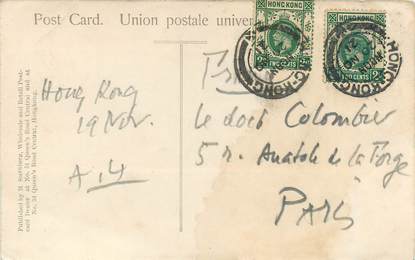 Post Card. Union postale univer
HONGKONG
HONGKONG
2C TWO CENTS 2C
2C TWO CENTS 2C
Hong Kong
19 Nov.
A.14
le doct Colombier
5 r. Anatole de la Forge
PARIS
Published by M. Sternberg, Wholesale and Retail Post-
card Dealer at No. 51 Queen's Road Central, Hongkong.